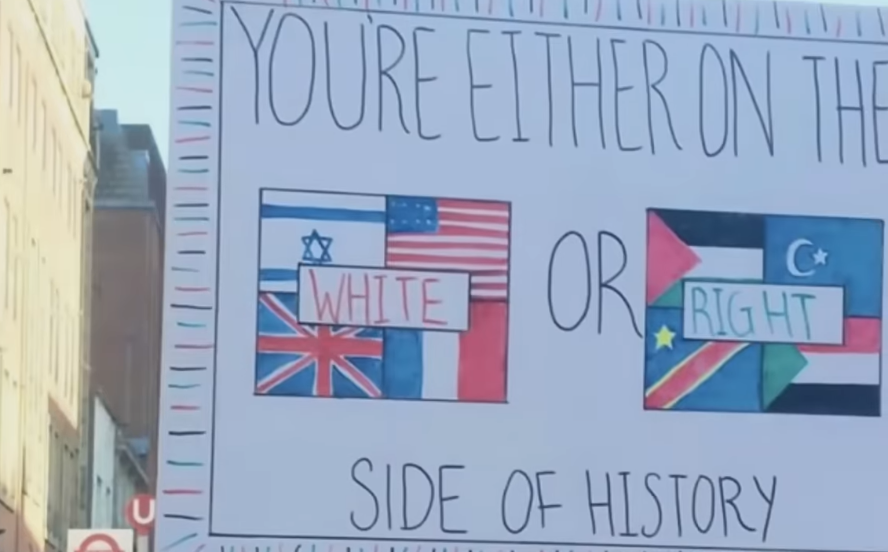 YOU'RE EITHER ON THE
WHITE
OR
RIGHT
SIDE OF HISTORY
U